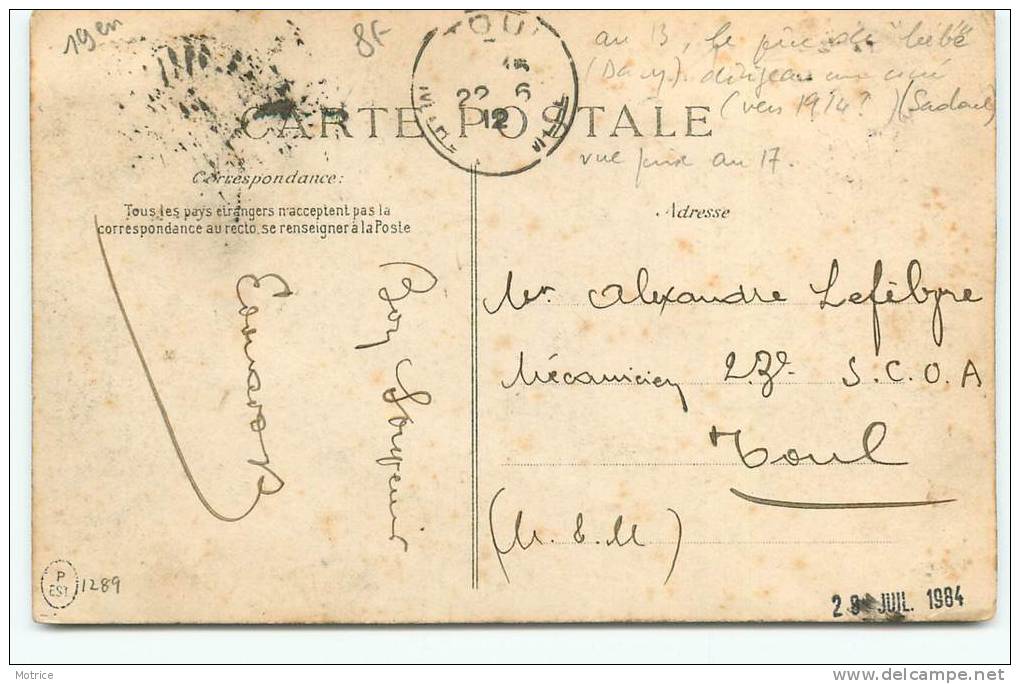 19en
8F
OUL
22 6
12
CARTE POSTALE
au 13, le père de bébé
dirigeait un ciné
(vers 1914?) (Sadoul)
vue prise au 17.
Correspondance:
Tous les pays étrangers n'acceptent pas la
correspondance au recto, se renseigner à la Poste
Adresse
Bon Souvenir
Edouard
Mr Alexandre Lefèbvre
Mécanicien 2 Bd. S.C.O.A
Toul
(M. & M)
P
EST
1289
28 JUIL. 1984
Motrice
delcampe.net